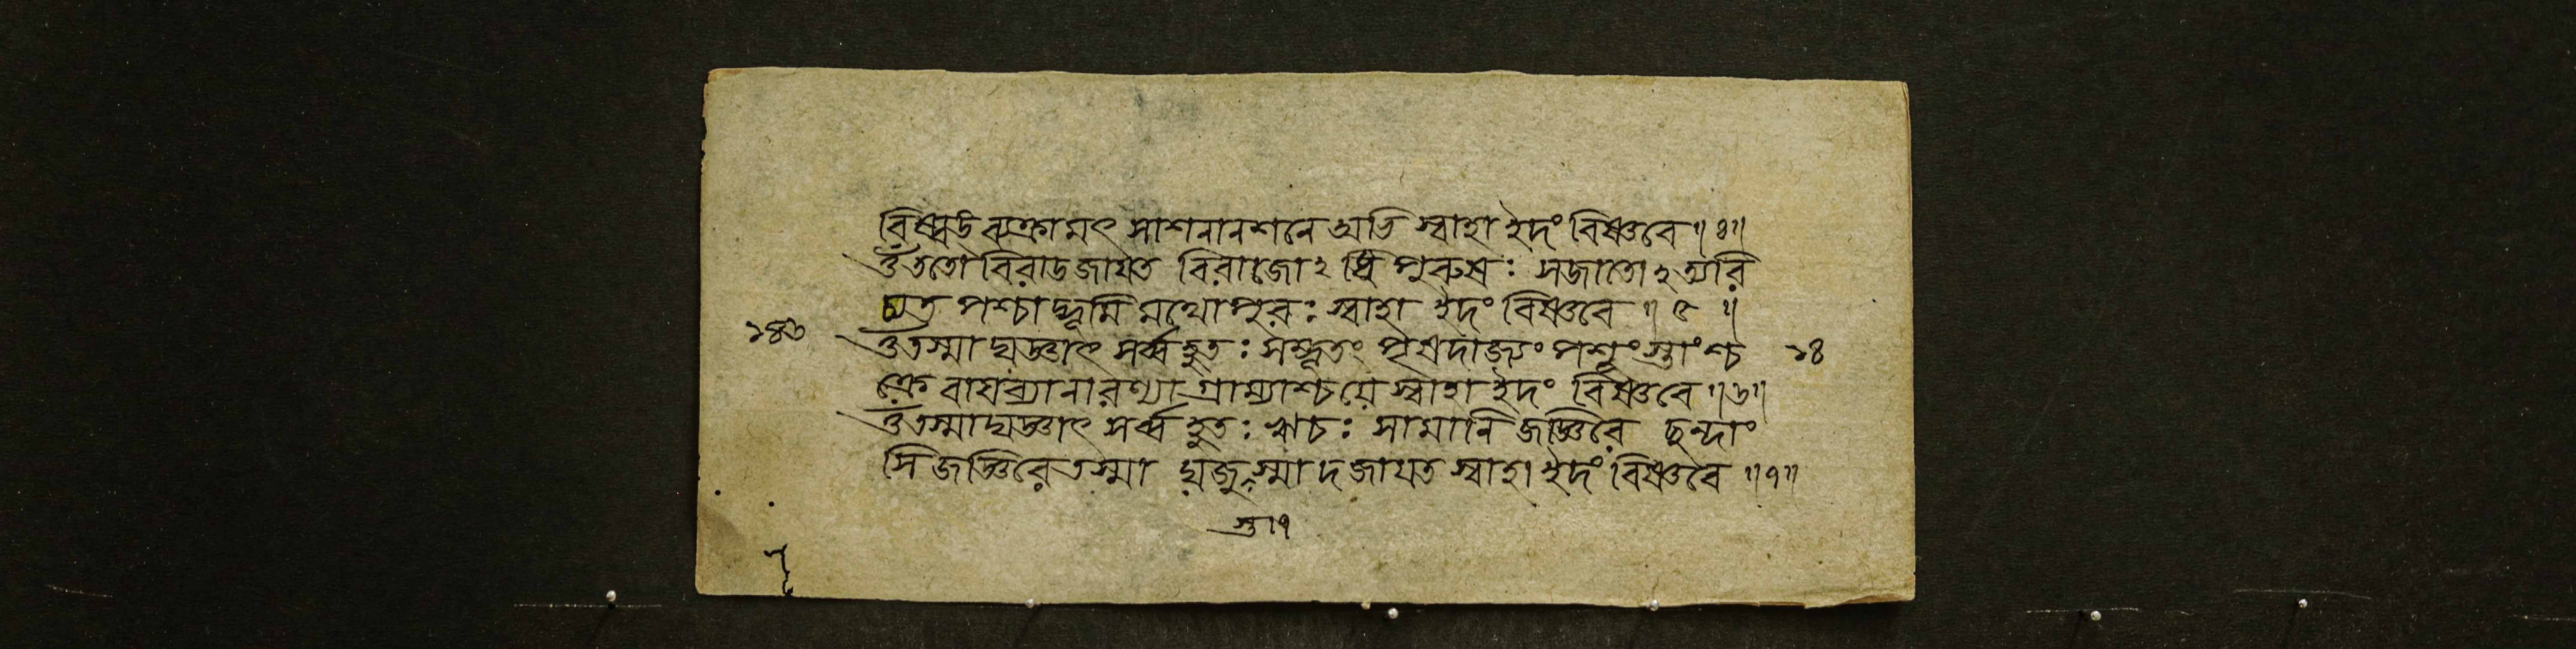 বিষ্বঙ ব্যক্রামৎ সাশনানশনে অভি স্বাহা ইদং বিষ্ণবে ॥ ৪ ॥
ওঁ ততো বিরাড জাযত বিরাজোঽ ধি পুরুষঃ সজাতোঽ অরি
চ্যত পশ্চাদ্ভূমি মথোপুরঃ স্বাহা ইদং বিষ্ণবে ॥ ৫ ॥
১৪৬ ওঁ তস্মাদ্যজ্ঞাৎ সর্ব্বহুতঃ সম্ভূতং পৃষদাজ্যং পশূংস্তাংশ্চ ১৪
ক্রে বাযব্যানারণ্যা গ্রাম্যাশ্চযে স্বাহা ইদং বিষ্ণবে ॥ ৬ ॥
ওঁ তস্মাদ্যজ্ঞাৎ সর্ব্বহুতঃ ঋচঃ সামানি জজ্ঞিরে ছন্দাং
সি জজ্ঞিরে তস্মা দ্যজুস্তস্মা দজাযত স্বাহা ইদং বিষ্ণবে ॥ ৭ ॥